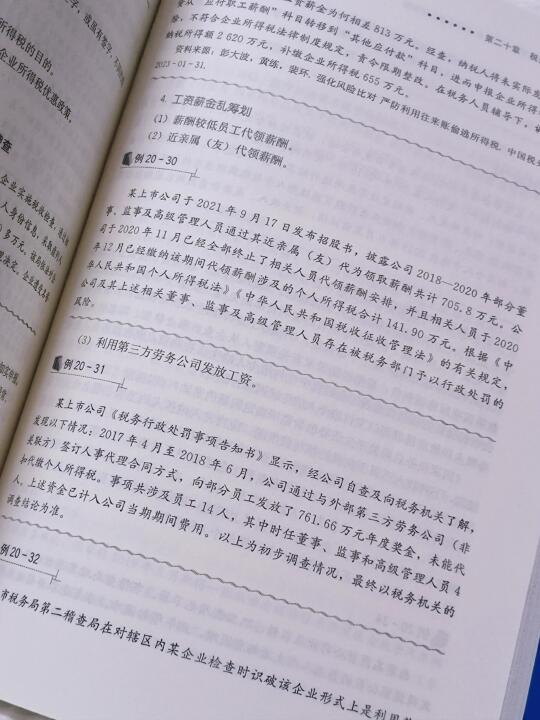 第二十章
工资薪金为何相差813万元。经查,纳税人将未实际发
资从“应付职工薪酬”科目转移到“其他应付款”科目,进而审核企业所得
除,不符合企业所得税法律制度规定,责令限期整改。在税务人员辅导下,
纳税所得额2 620万元,补缴企业所得税655万元。
资料来源:彭大波,黄练,裴环. 强化风险比对 严防利用往来账偷逃所得税. 中国税
2023-01-31.
4. 工资薪金乱筹划
(1)薪酬较低员工代领薪酬。
(2)近亲属(友)代领薪酬。
例20-30
某上市公司于2021年9月17日发布招股书,披露公司2018—2020年部分董
事、监事及高级管理人员通过其近亲属(友)代为领取薪酬共计705.8万元。公
司于2020年11月已经全部终止了相关人员代领薪酬安排,并且相关人员于2020
年12月已经缴纳该期间代领薪酬涉及的个人所得税合计141.90万元。根据《中
华人民共和国个人所得税法》《中华人民共和国税收征收管理法》的有关规定,
公司及其上述相关董事、监事及高级管理人员存在被税务部门予以行政处罚的
风险。
(3)利用第三方劳务公司发放工资。
例20-31
某上市公司《税务行政处罚事项告知书》显示,经公司自查及向税务机关了解,
发现以下情况:2017年4月至2018年6月,公司通过与外部第三方劳务公司(非
关联方)签订人事代理合同方式,向部分员工发放了761.66万元年度奖金,未能代
扣代缴个人所得税。事项共涉及员工14人,其中时任董事、监事和高级管理人员4
人,上述资金已计入公司当期期间费用。以上为初步调查情况,最终以税务机关的
调查结论为准。
例20-32
市税务局第二稽查局在对辖区内某企业检查时识破该企业形式上是利用